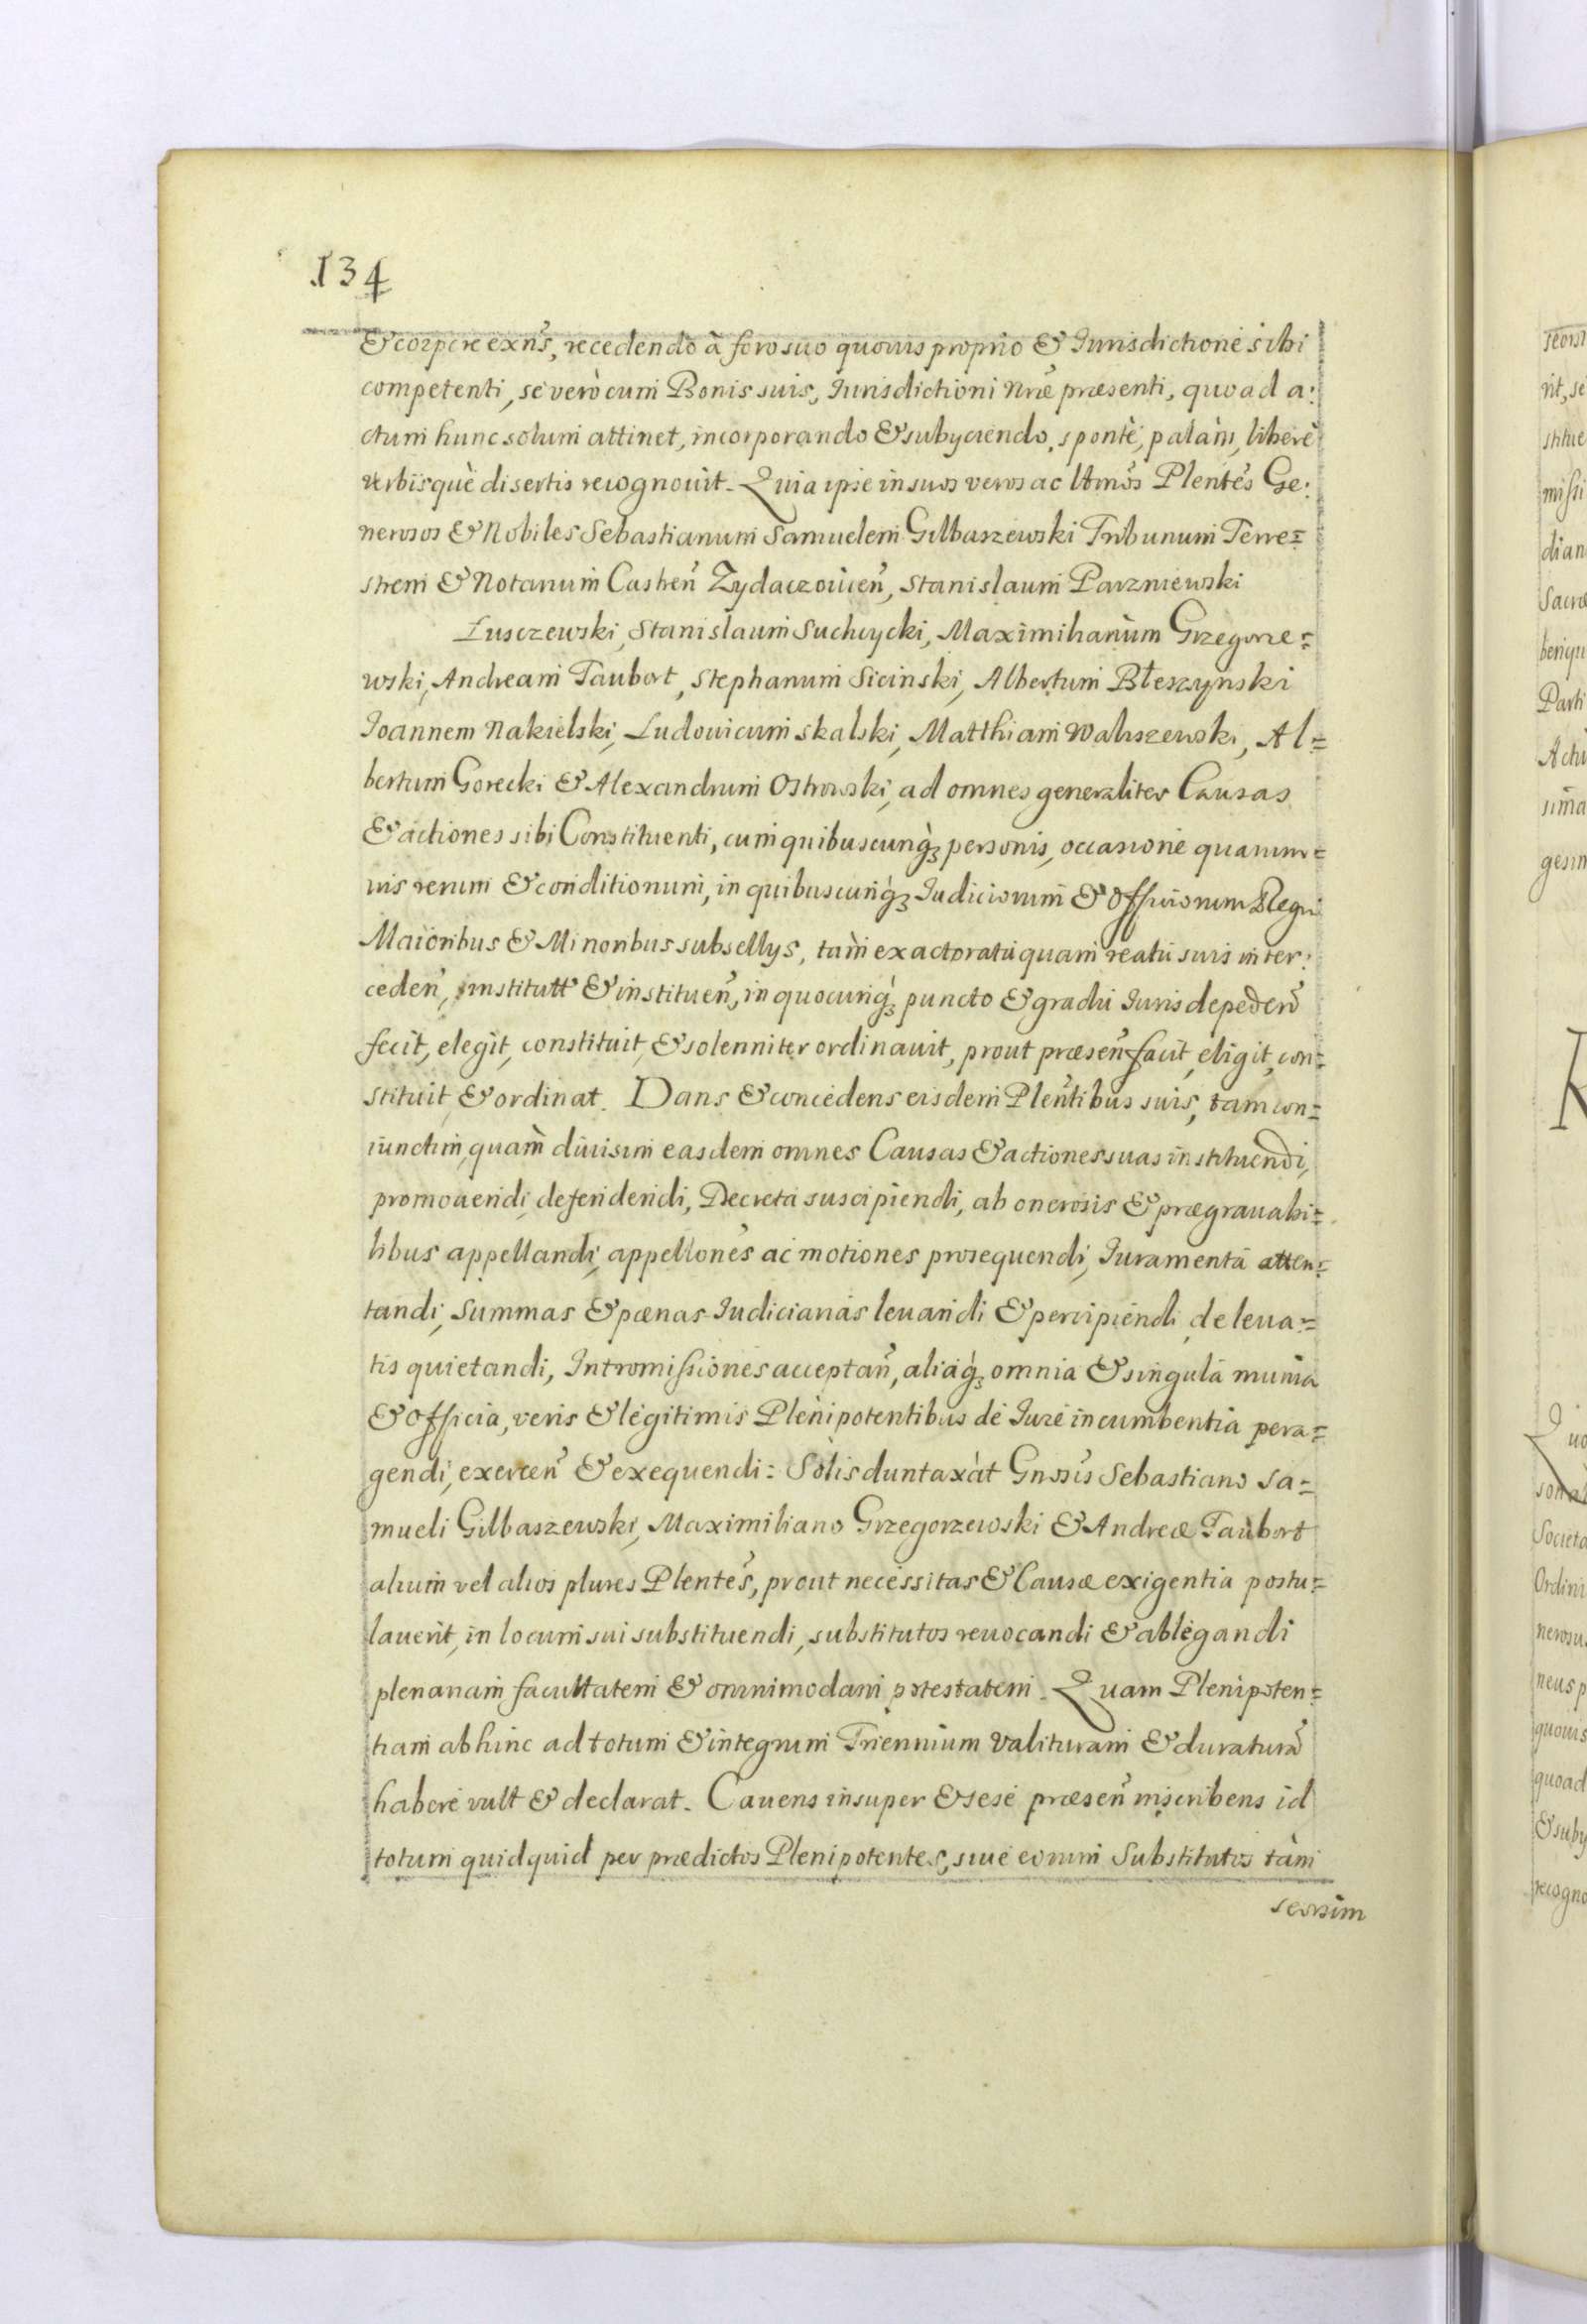 134
& corpore exńs, recedendo à foro suo quovis proprio & Iurisdictione sibi
competenti, se verò cum Bonis suis, Iurisdictioni nr̃æ præsenti, quoad a:
ctum hunc solum attinet, incorporando & subyciendo, spontè, palàm, liberè
verbisquè disertis recognovit. Quia ipse in suos veros ac ltmõs Plentẽs Ge:
nerosos & Nobiles Sebastianum Samuelem Gilbaszewski Tribunum Terre=
strem & Notarium Castreñ Zydaczovieñ, Stanislaum Parzniewski
Lusczewski, Stanislaum Suchcycki, Maximilianum Grzegorze=
wski, Andream Taubert, Stephanum Sicinski, Albertum Błeszynski
Ioannem Nakielski, Ludovicum Skalski, Matthiam Waliszewski, Al=
bertum Gorecki & Alexandrum Ostrowski, ad omnes generaliter Causas
& actiones sibi Constituenti, cum quibuscunq̀ꝫ personis, occasione quarum=
vis rerum & conditionum, in quibuscunq̀ꝫ Iudiciorum & Officiorum Regni
Maioribus & Minoribus subsellys, tam ex actoratu quam reatu suis inter:
cedeñ, institutt & instituen̄, in quocunq̀ꝫ puncto & gradu Iuris depedeñ
fecit, elegit, constituit, & solenniter ordinavit, prout præseñ facit, eligit, con=
stituit & ordinat. Dans & concedens eisdem Plentibus suis, tam con=
iunctim, quam divisim easdem omnes Causas & actiones suas instituendi,
promovendi, defendendi, Decreta suscipiendi, ab onerosis & prægravabi=
libus appellandi, appellõnes ac motiones prosequendi, Iuramenta atten=
tandi, Summas & pænas Iudiciarias levandi & percipiendi, de leva=
tis quietandi, Intromissiones acceptañ, aliaq̀ꝫ omnia & singula munia
& officia, veris & legitimis Plenipotentibus de Iure incumbentia pera=
gendi, exerceñ & exequendi: Solis duntaxàt Gnosis Sebastiano Sa=
mueli Gilbaszewski, Maximiliano Grzegorzewski & Andreæ Taubert
alium vel alios plures Plentẽs, prout necessitas & Causæ exigentia postu=
laverit, in locum sui substituendi, substitutos revocandi & ablegandi
plenariam facultatem & omnimodam potestatem. Quam Plenipoten=
tiam abhinc ad totum & integrum Triennium valituram & duraturã
habere vult & declarat. Cavens insuper & sese præseñ inscribens id
totum quidquid per prædictos Plenipotentes, sive eorum Substitutos tàm
seorsim